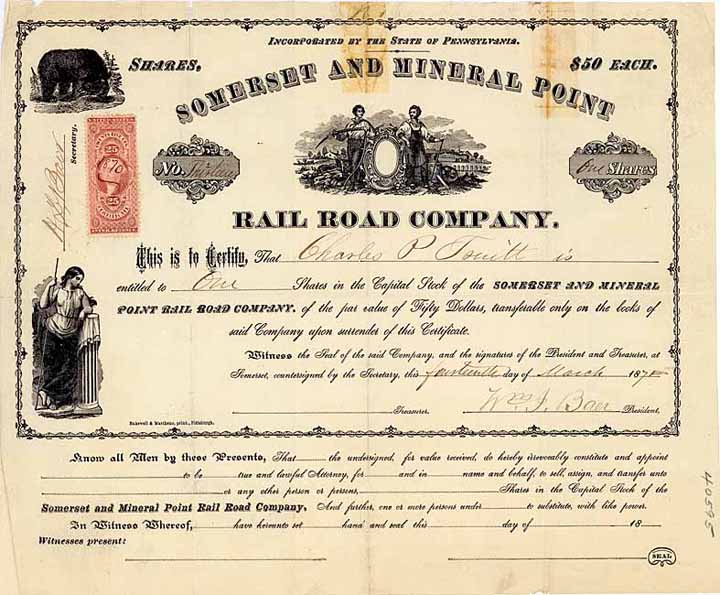 INCORPORATED BY THE STATE OF PENNSYLVANIA.
SHARES, $50 EACH.
SOMERSET AND MINERAL POINT
Secretary.
25 25
No. One Shares
RAIL ROAD COMPANY.
This is to Certify, That Charles P is
entitled to One Shares in the Capital Stock of the SOMERSET AND MINERAL
POINT RAIL ROAD COMPANY, of the par value of Fifty Dollars, transferable only on the books of
said Company upon surrender of this Certificate.
Witness the Seal of the said Company, and the signatures of the President and Treasurer, at
Somerset, countersigned by the Secretary, this fourteenth day of March 187
Treasurer. Wm. J. Baer President.
Bakewell & Marthens, print., Pittsburgh.
Know all Men by these Presents, That the undersigned, for value received, do hereby irrevocably constitute and appoint
to be true and lawful Attorney, for and in name and behalf, to sell, assign, and transfer unto
or any other person or persons, Shares in the Capital Stock of the
Somerset and Mineral Point Rail Road Company. And further, one or more persons under to substitute, with like power.
In Witness Whereof, have hereunto set hand and seal this day of 18
Witnesses present:
SEAL
40595